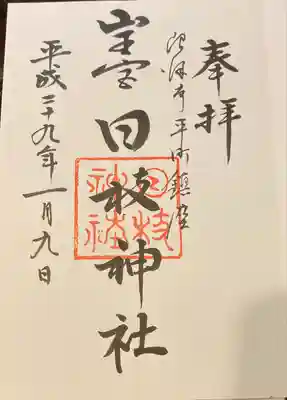 奉拝
沼津市平町鎮座
山王宮日枝神社
日枝神社
平成二十九年一月九日